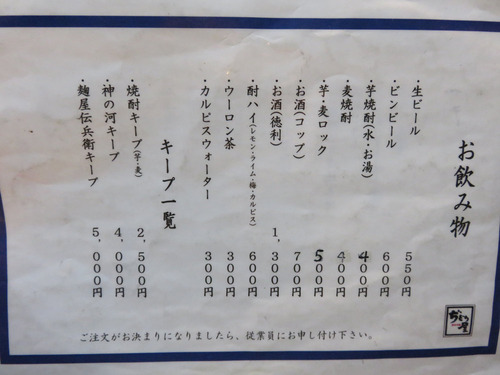 お飲み物
・生ビール 550円
・ビンビール 600円
・芋焼酎(水・お湯) 400円
・麦焼酎 400円
・芋・麦ロック 500円
・お酒(コップ) 700円
・お酒(徳利) 1,300円
・酎ハイ(レモン・ライム・梅・カルピス) 600円
・ウーロン茶 300円
・カルピスウォーター 300円
キープ一覧
・焼酎キープ(芋・麦) 2,500円
・神の河キープ 4,000円
・麹屋伝兵衛キープ 5,000円
ご注文がお決まりになりましたら、従業員にお申し付け下さい。